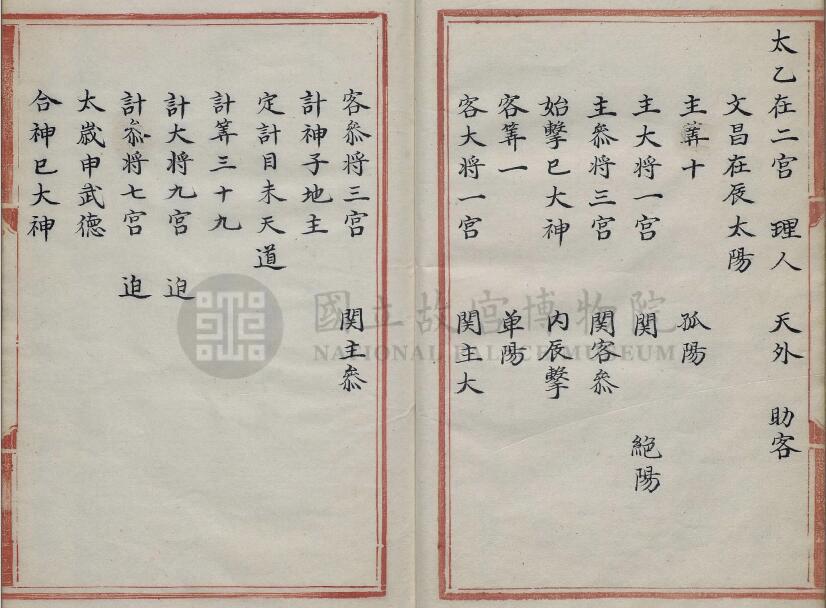 太乙在二宮 理人 天外 助客
文昌在辰太陽
主筭十 孤陽
主大将一宮 関 絶陽
主叅将三宮 関客叅
始擊巳大神 内辰擊
客筭一 单陽
客大将一宮 関主大
客叅将三宮 関主叅
計神子地主
定計目未天道
計筭三十九
計大将九宮 迫
計叅将七宮 迫
太歳申武德
合神巳大神
國立故宮博物院
NATIONAL PALACE MUSEUM